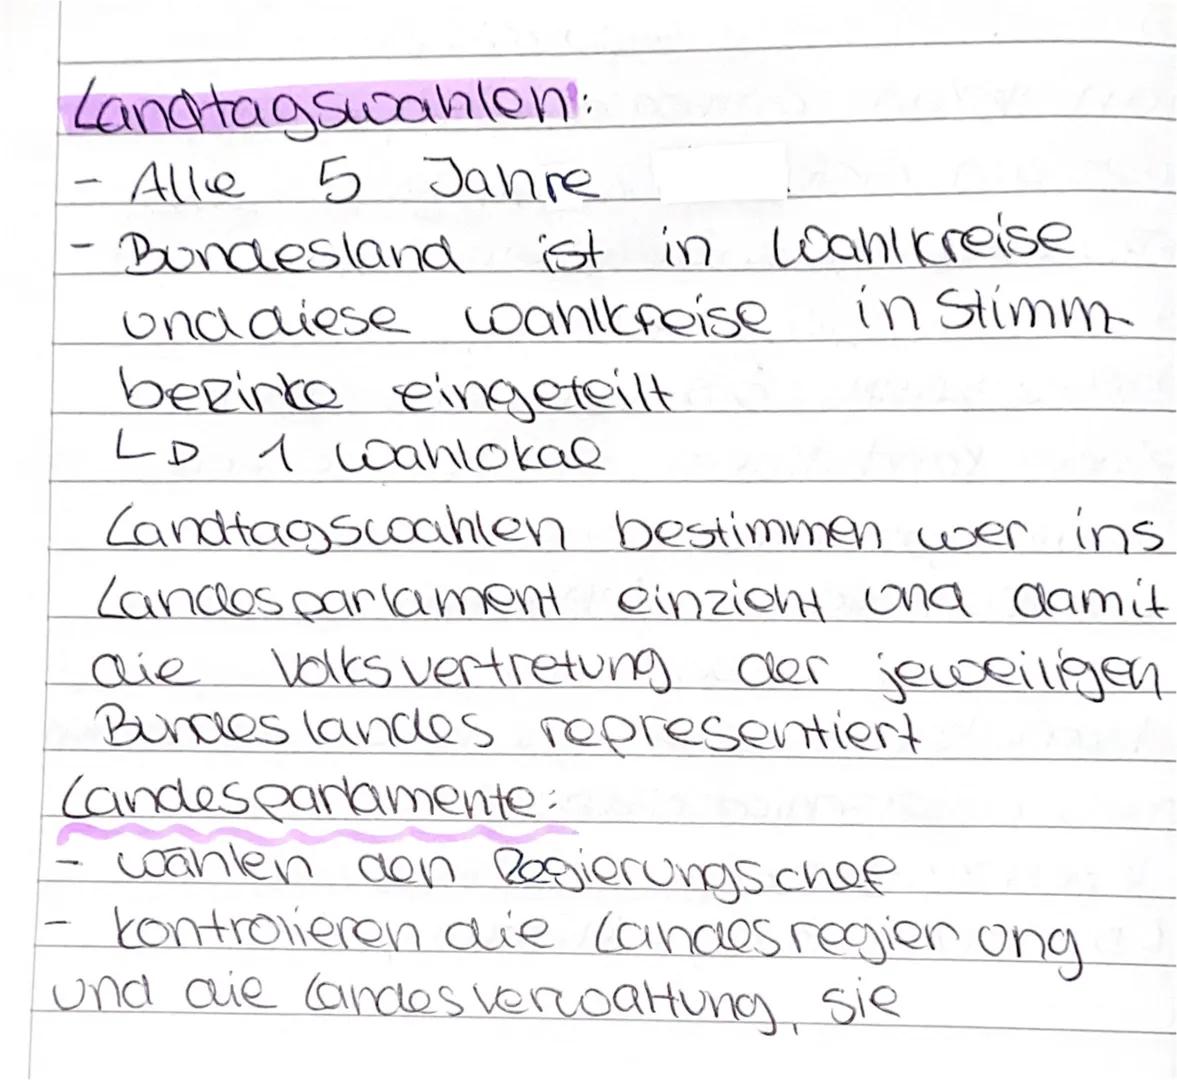 Landtagswahlen:
- Alle 5 Jahre
- Bundesland ist in Wahlkreise
und diese Wahlkreise in Stimm-
bezirke eingeteilt
↳ 1 Wahlokal
Landtagswahlen bestimmen wer ins
Landesparlament einzieht und damit
die Volksvertretung der jeweiligen
Bundeslandes representiert
Landesparlamente:
- wählen den Regierungschef
- kontrolieren die Landesregierung
und die Landesverwaltung, sie